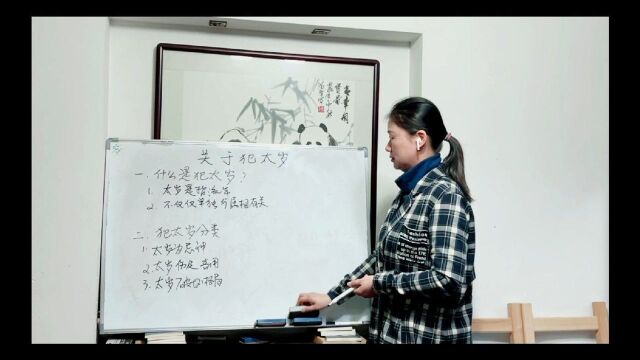 关于犯太岁
一.什么是犯太岁?
1.太岁是指流年
2.不仅仅单独与属相有关
二.犯太岁分类
1.太岁为忌神
2.太岁伤及喜用
3.太岁破坏格局